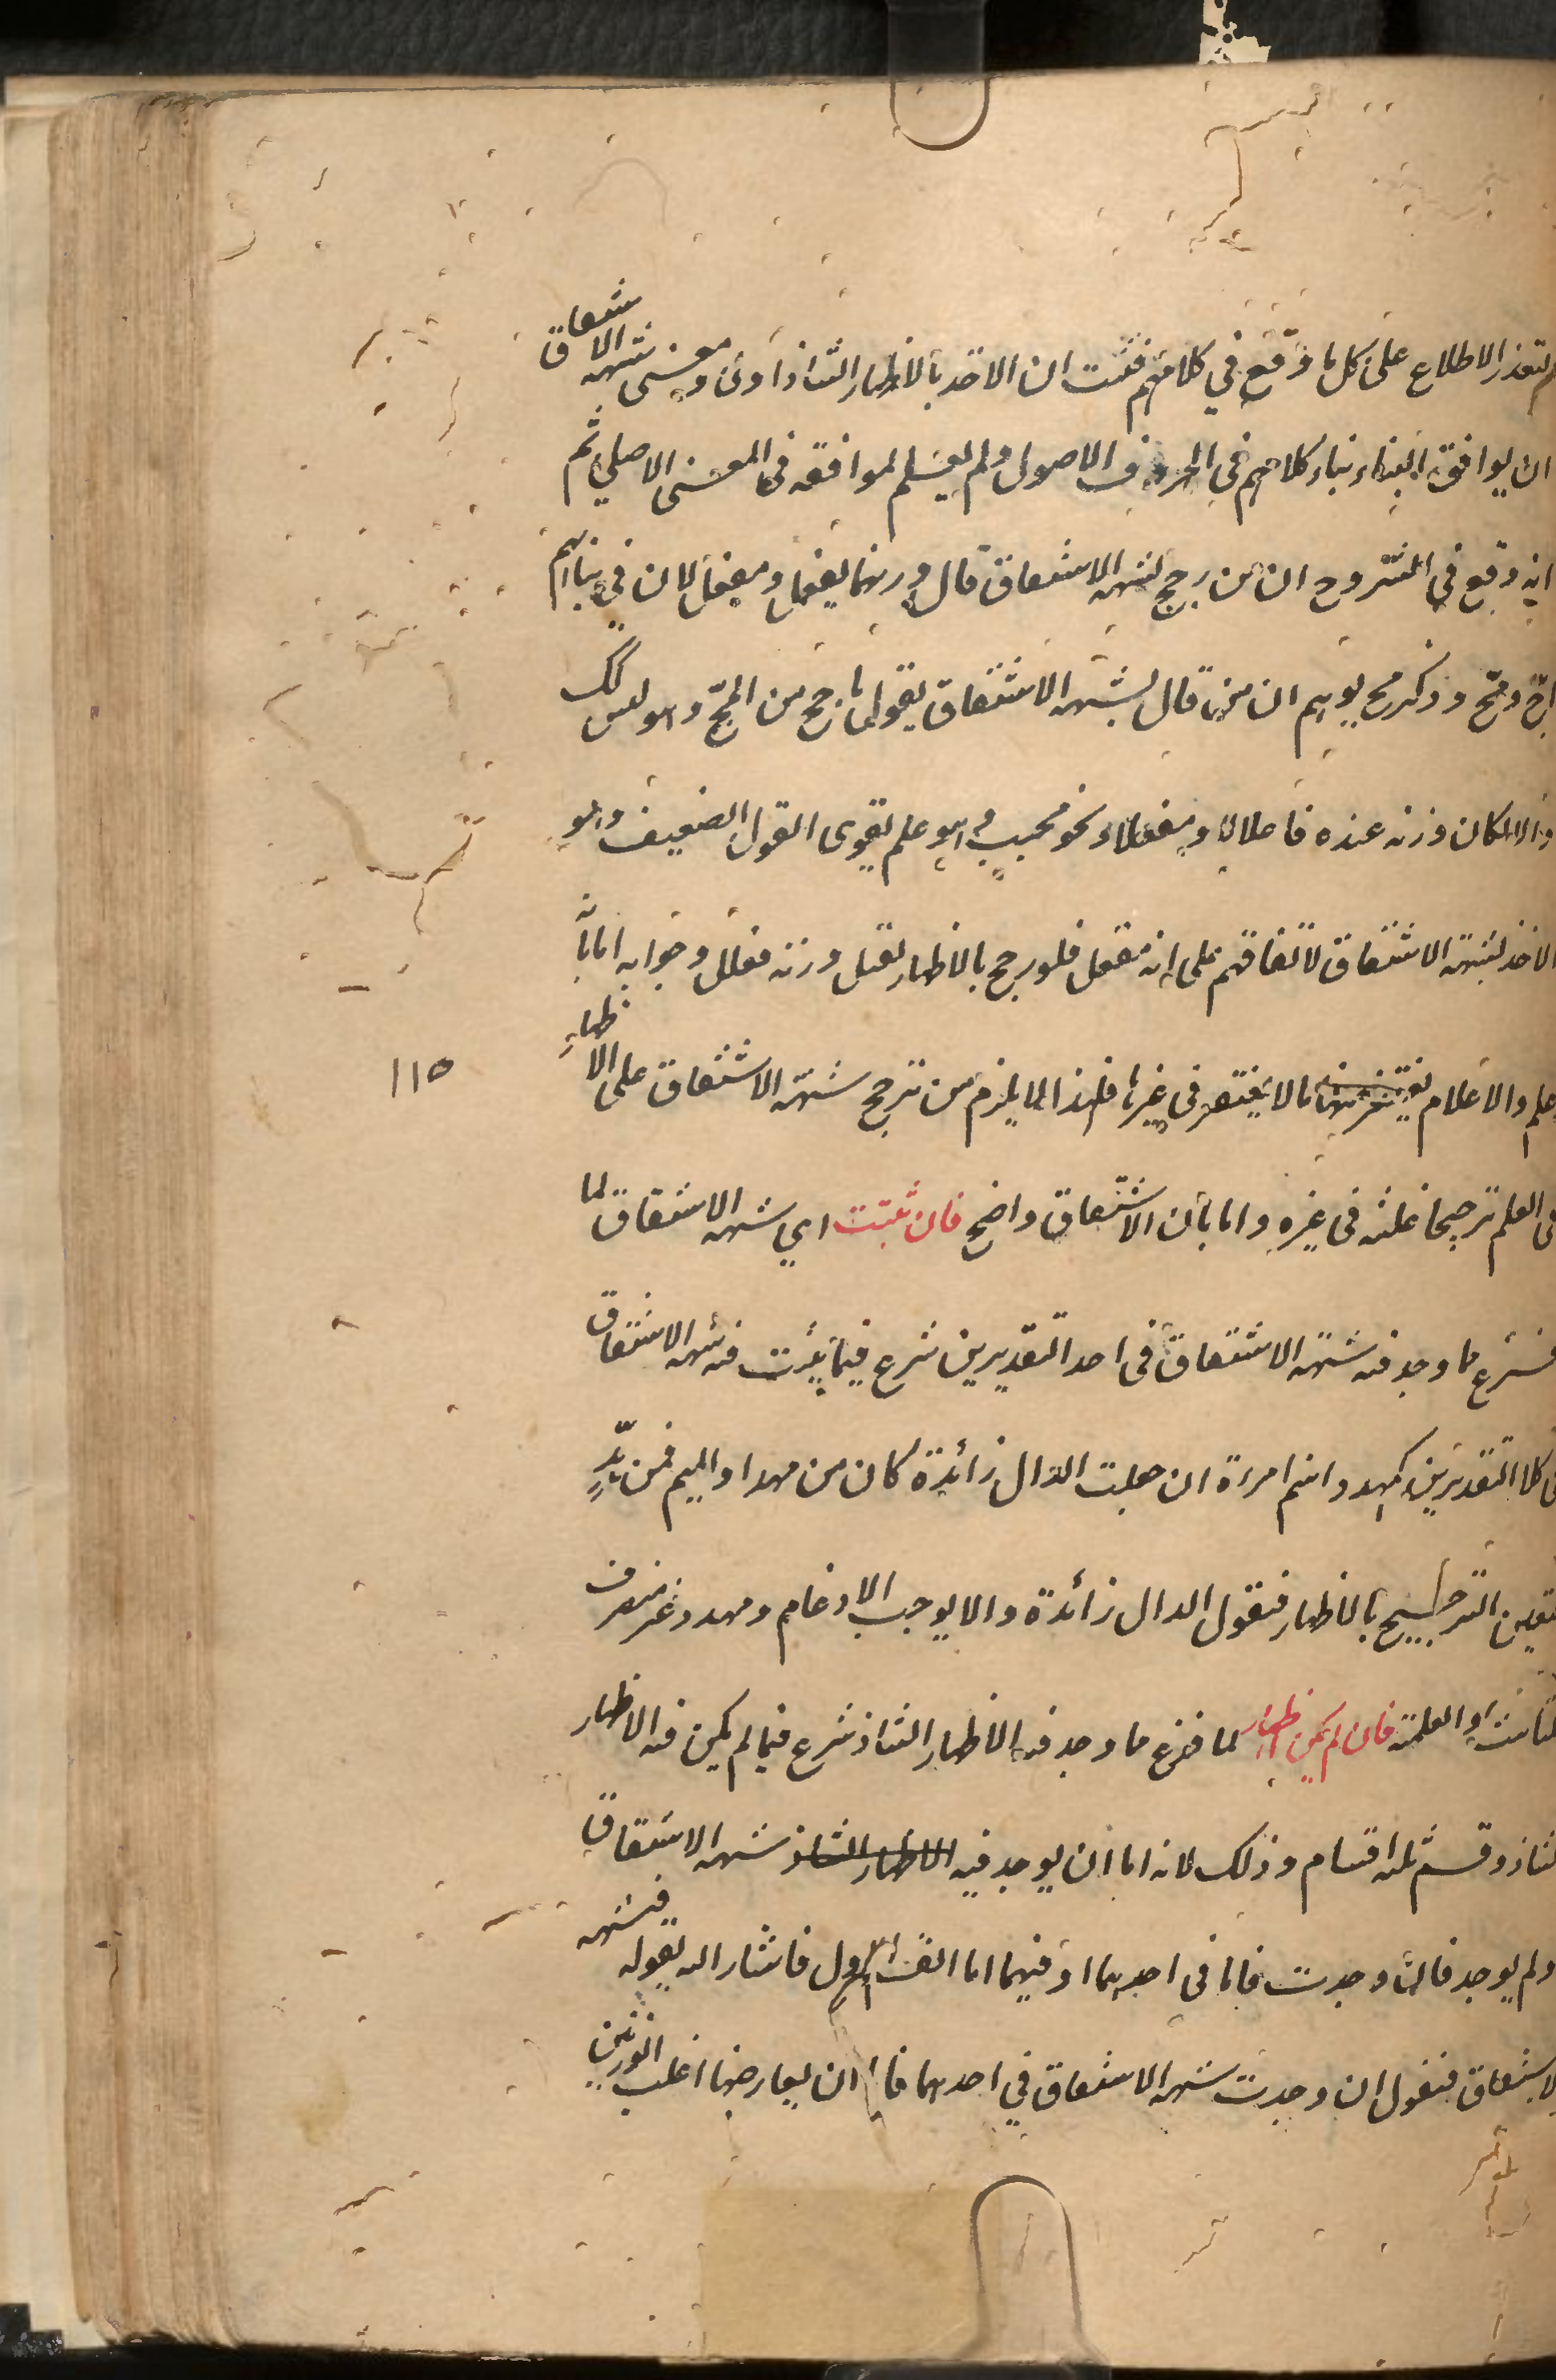 لتعذر الاطلاع على كل ما وقع في كلامهم فثبت ان الاخذ بالاظهار الشاذ اولى ومعنى شبهة الاشتقاق
ان يوافق البناء بناء كلامهم في الحروف الاصول ولم يعلم لموافقه في المعنى الاصلي ثم
انه وقع في الشروح ان من رجح لشبهة الاشتقاق قال وزنهما يفعل ومفعل لان في بنائهم
اجّ ومجّ وذكر مجّ يوهم ان من قال بشبهة الاشتقاق يقول ماجج من المجّ وهو ليس كك
والا لكان وزنه عنده فاعلا لا مفعلا ونحو محبب وهو علم يقوى القول الضعيف وهو
الاخذ لشبهة الاشتقاق لاتفاقهم على انه مفعل فلو رجح بالاظهار لقيل وزنه فعلل وجوابه اما بانه
علم والاعلام يغتفر فيها ما لا يغتفر في غيرها فلهذا لا يلزم من ترجح شبهة الاشتقاق على الاظهار
في العلم ترجيحا عليه في غيره واما بان الاشتقاق واضح فان ثبتت اي شبهة الاشتقاق لما
فرغ مما وجد فيه شبهة الاشتقاق في احد التقديرين شرع فيما يثبت فيه شبهة الاشتقاق
في كلا التقديرين كمهدد اسم امراة ان جعلت الدال زائدة كان من مهد او الميم فمن هدّ
فتعين الترجيح بالاظهار فنقول الدال زائدة والا يوجب الادغام ومهدد غير منصرف
للتانيث والعلمية فان لم يكن اظهار لما فرغ مما وجد فيه الاظهار الشاذ شرع فيما لم يكن فيه الاظهار
الشاذ وقسم ثلثه اقسام وذلك لانه اما ان يوجد فيه الاظهار الشاذ شبهة الاشتقاق
ولم يوجد فان وجدت فاما في احدهما او فيهما اما القسم الاول فاشار اليه بقوله فبشبهة
الاشتقاق فنقول ان وجدت شبهة الاشتقاق في احدهما فاما ان يعارضها اغلب الوزنين
١١٥